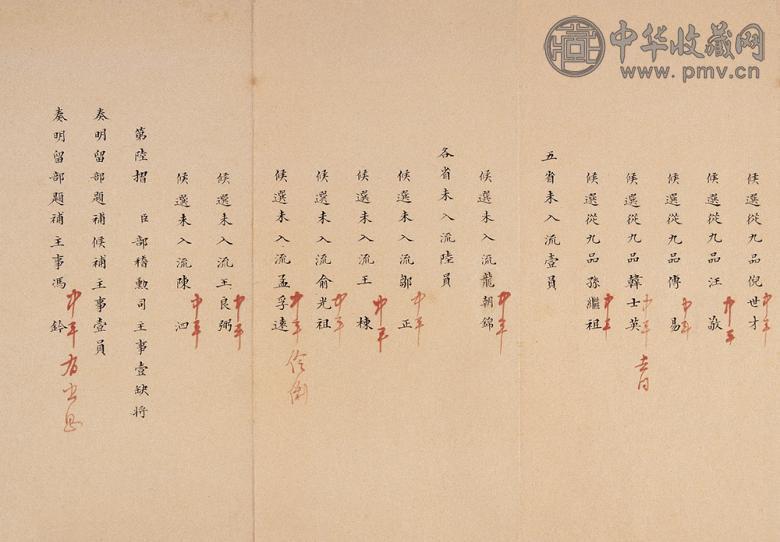 中华收藏网
www.pmv.cn
候選從九品倪世才 中年
候選從九品汪敬 中年
候選從九品傅易 中年
候選從九品韓士英 中年 去得
候選從九品孫繼祖 中年
五省未入流壹員
候選未入流龍朝錦 中年
各省未入流陸員
候選未入流鄒正 中年
候選未入流王棟 中年
候選未入流俞光祖 中年
候選未入流孟孚遠 中年 伶俐
候選未入流王良弼 中年
候選未入流陳泗 中年
第陸摺 臣部稽勳司主事壹缺將
奏明留部題補候補主事壹員
奏明留部題補主事馮鈐 中年 有出息